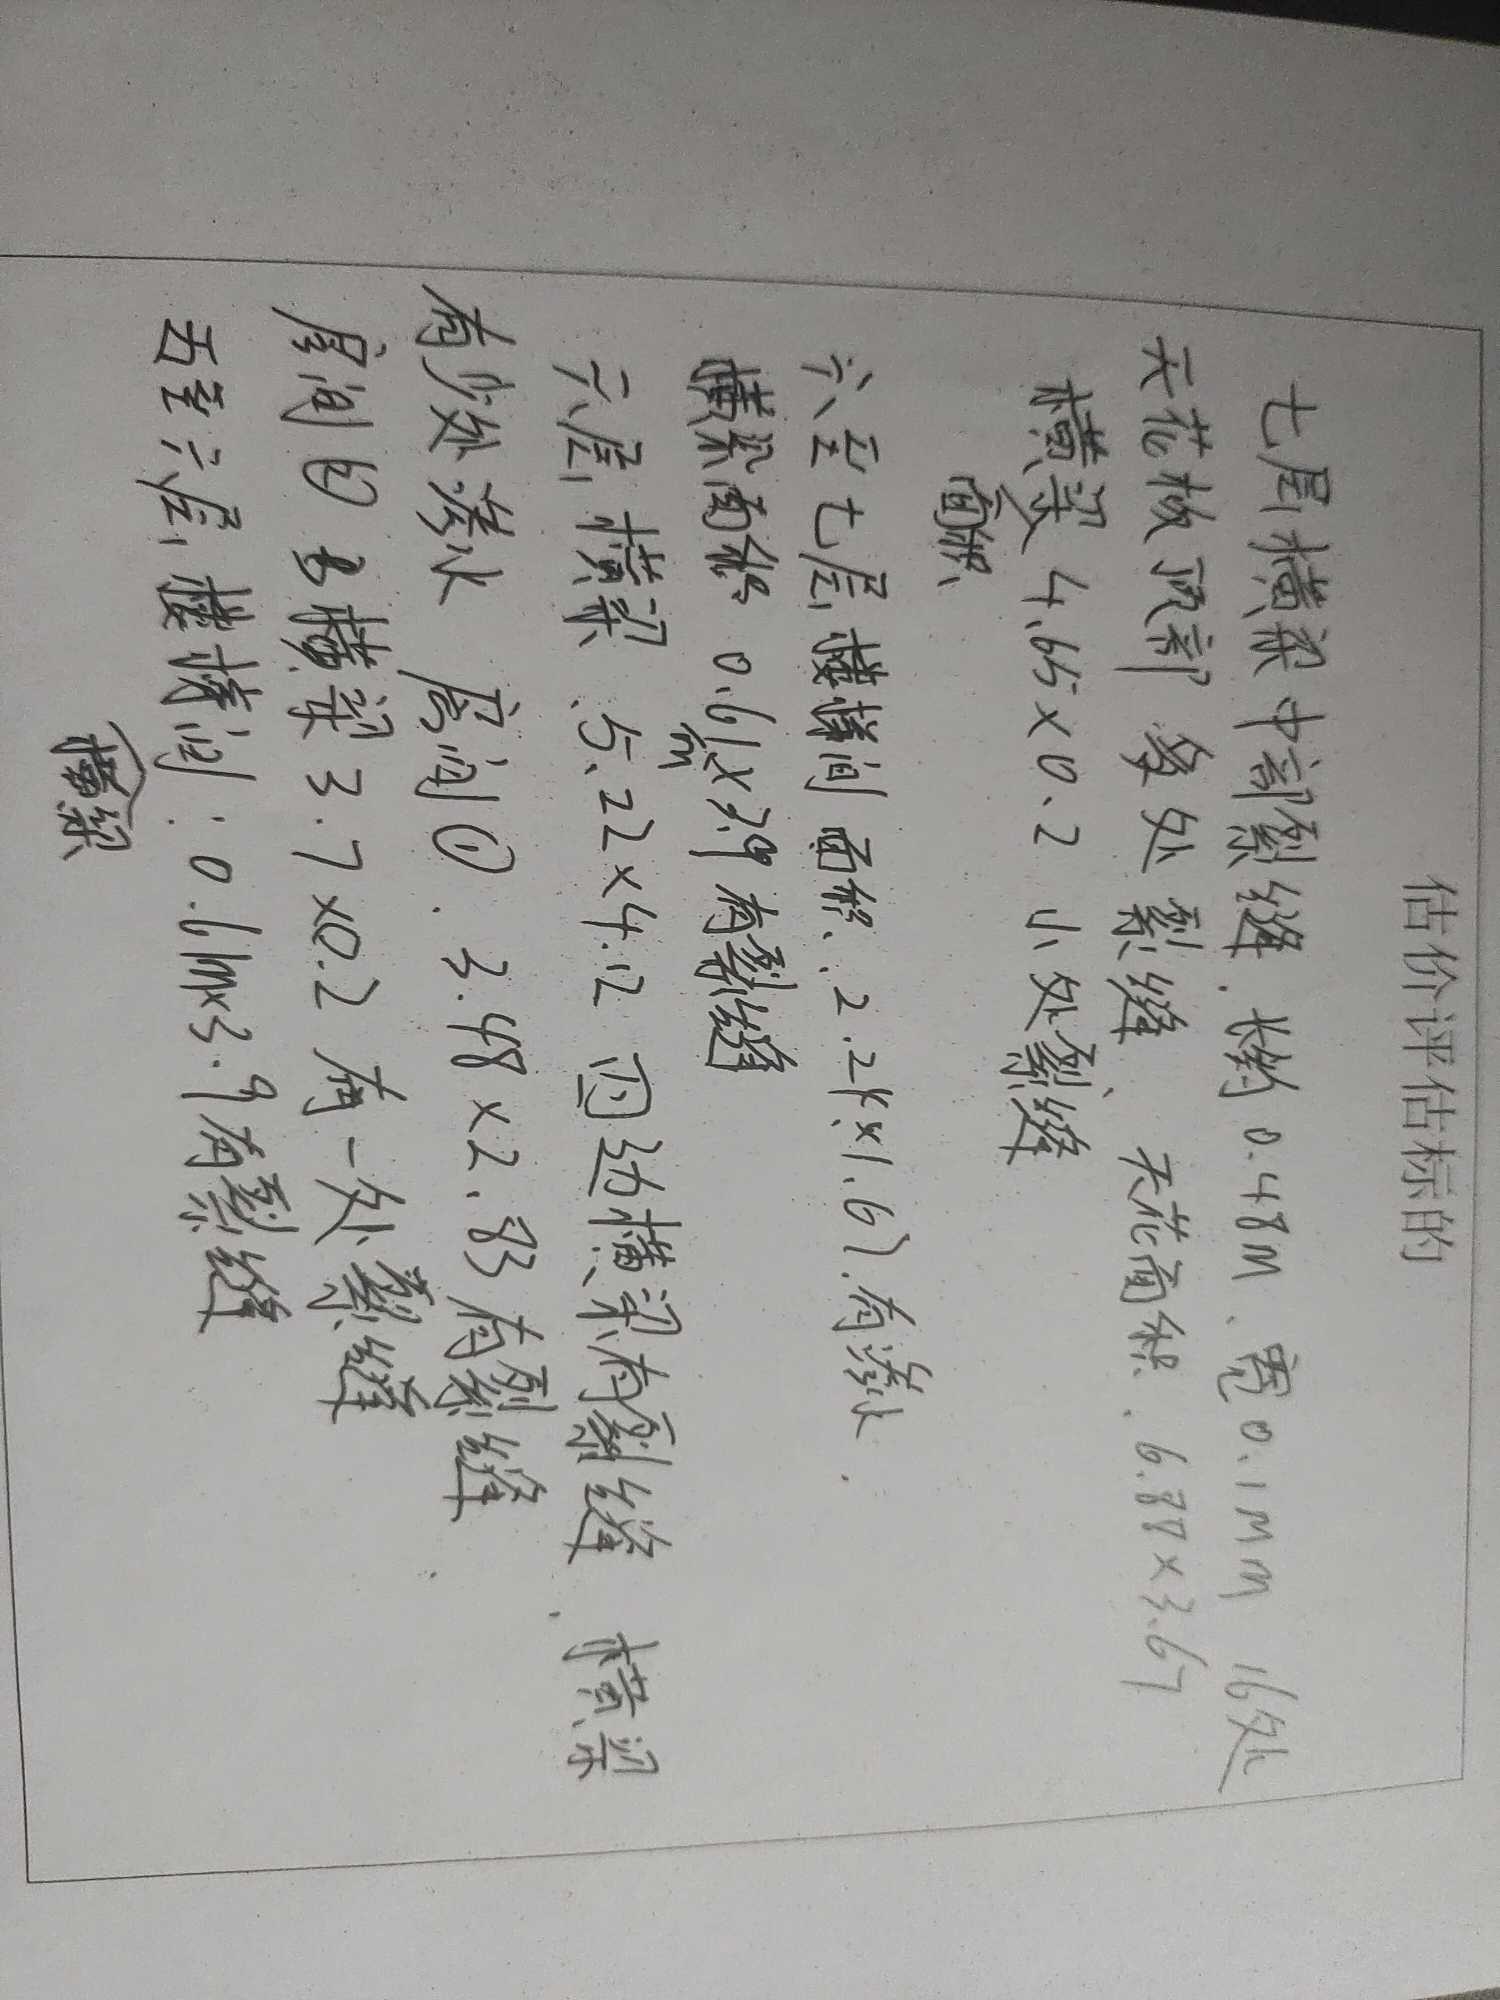 估价评估标的
七层横梁中部裂缝、长约0.48m、宽0.1mm 16处
天花板顶部 多处裂缝、天花面积、6.88×3.67
横梁 4.65×0.2 小处裂缝
面积
六至七层楼梯间 面积、2.24×1.67、有渗水.
横梁面积 0.61×3.9有裂缝
m
六层 横梁、5.22×4.12 四边横梁有裂缝、横梁
有少处渗水 房间①、3.48×2.83有裂缝
房间② 横梁3.7×0.2 有一处裂缝
五至六层楼梯间:0.61m×3.9有裂缝
横梁